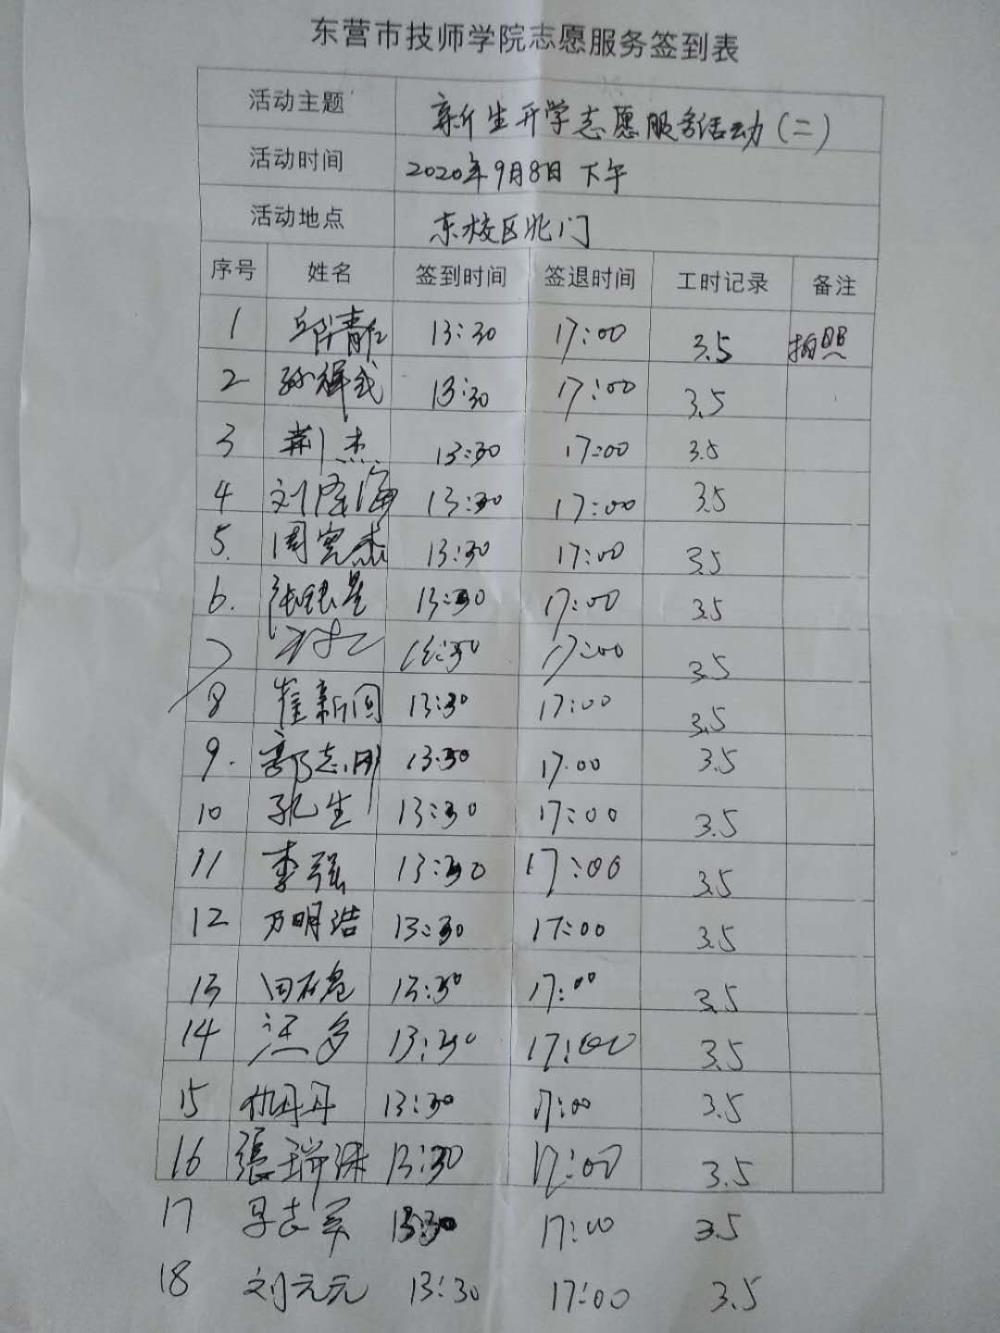 东营市技师学院志愿服务签到表
活动主题 新生开学志愿服务活动(二)
活动时间 2020年9月8日 下午
活动地点 东校区北门
序号 姓名 签到时间 签退时间 工时记录 备注
1 13:30 17:00 3.5 拍照
2 13:30 17:00 3.5
3 荆杰 13:30 17:00 3.5
4 刘泽海 13:30 17:00 3.5
5. 周宪杰 13:30 17:00 3.5
6. 张银星 13:30 17:00 3.5
7 13:30 17:00 3.5
8 崔新阁 13:30 17:00 3.5
9. 郭志刚 13:30 17:00 3.5
10 孔生 13:30 17:00 3.5
11 李强 13:30 17:00 3.5
12 万明浩 13:30 17:00 3.5
13 13:30 17:00 3.5
14 13:30 17:00 3.5
15 丹丹 13:30 17:00 3.5
16 張瑞 13:30 17:00 3.5
17 13:30 17:00 3.5
18 刘元元 13:30 17:00 3.5